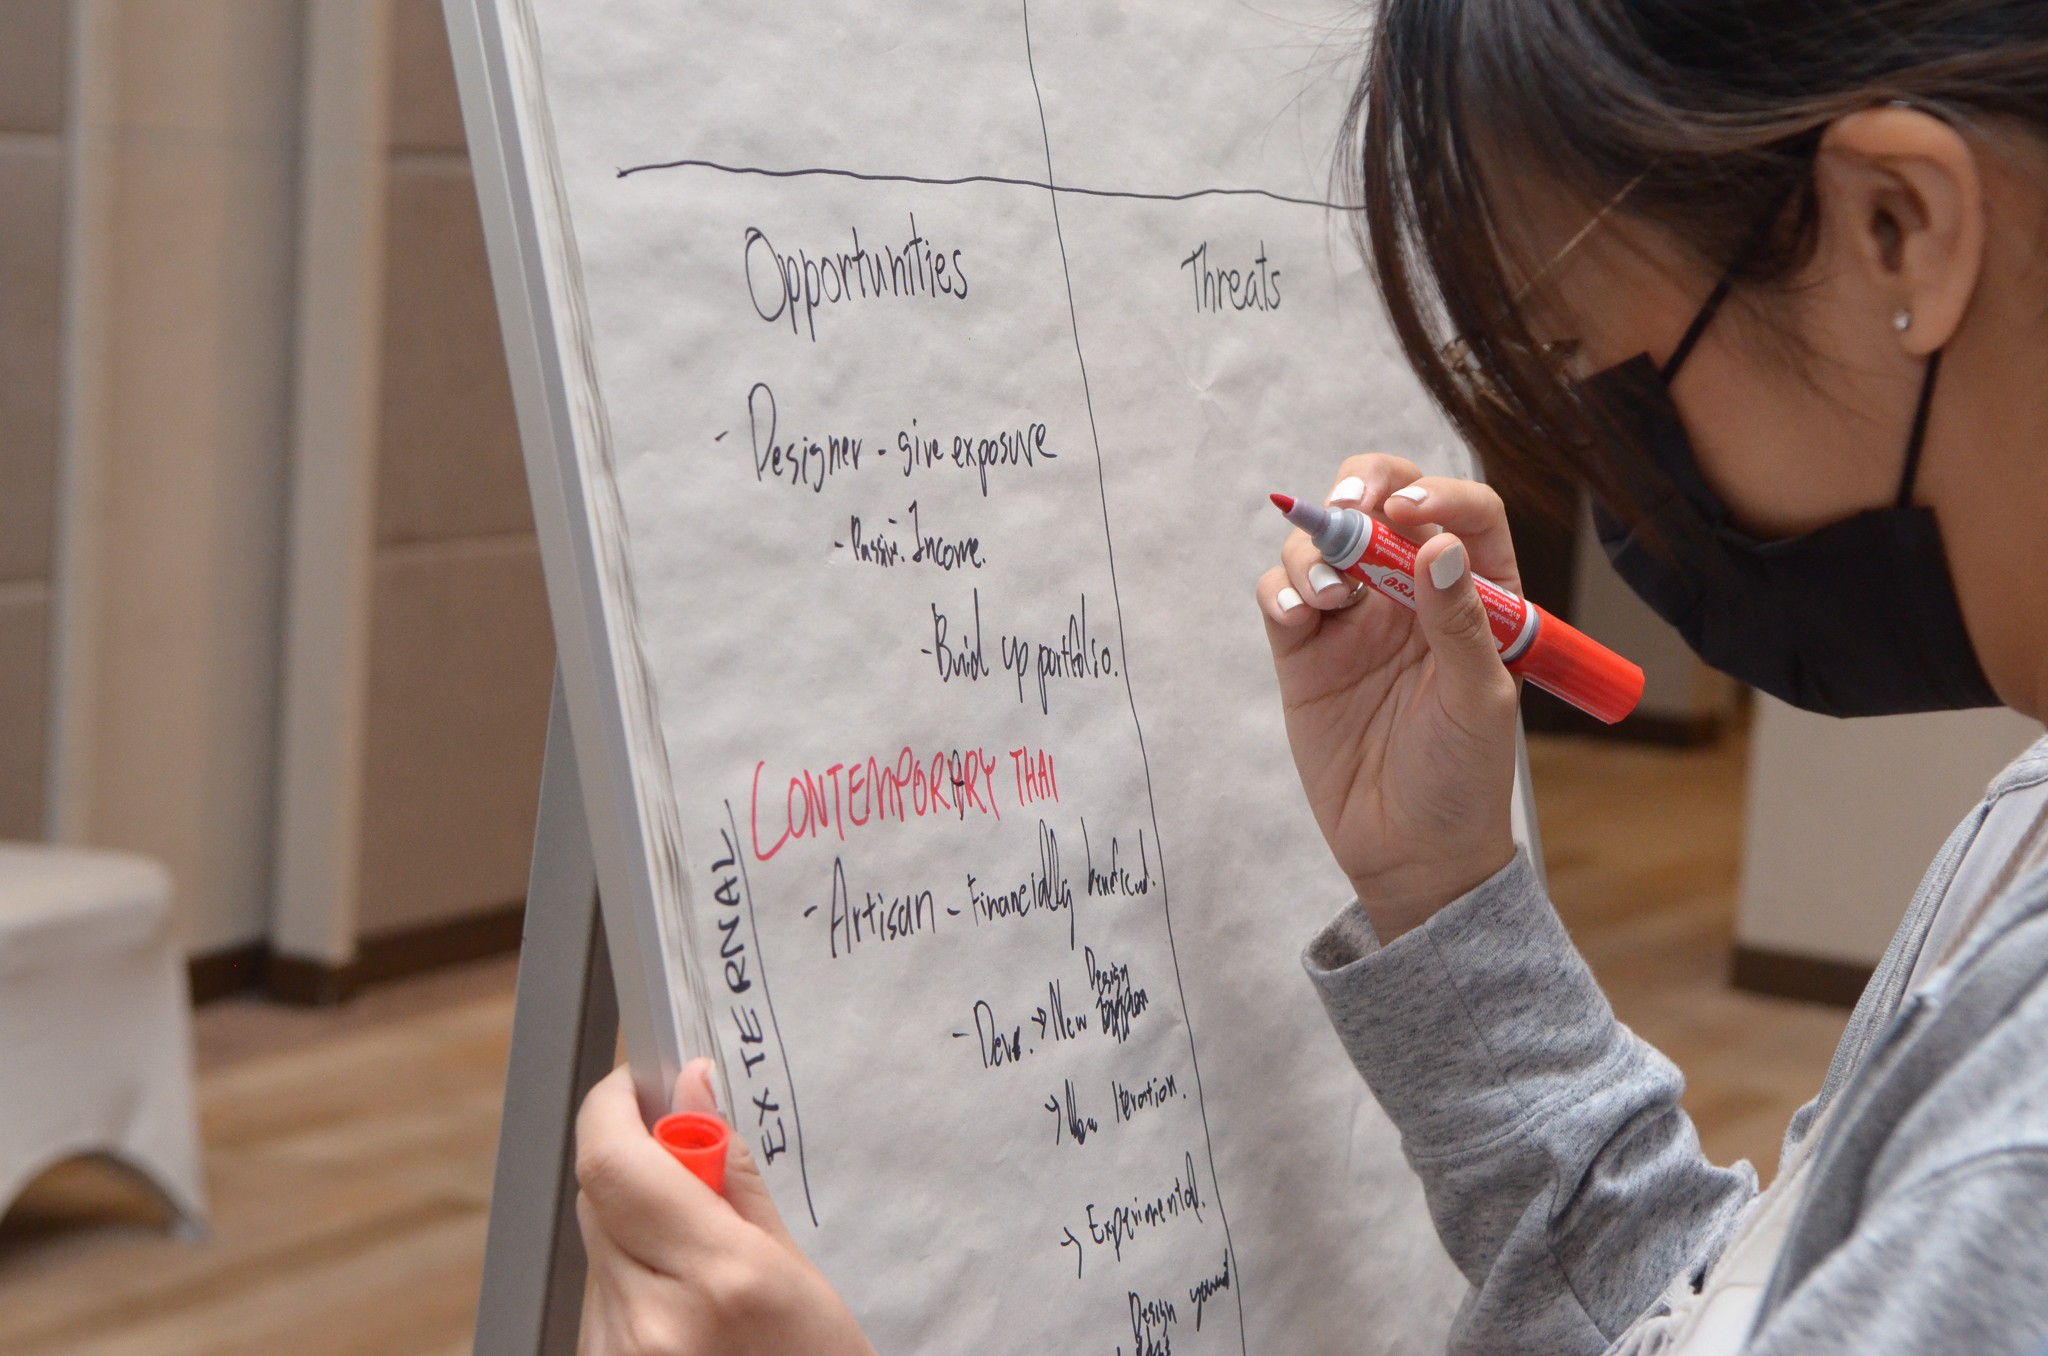 Opportunities
Threats
- Designer - give exposure
- Passiv. Income.
- Build up portfolio.
CONTEMPORARY THAI
- Artisan - Financially
Design
- Deve. → New
→ New Iteration.
→ Experimental.
Design
EXTERNAL